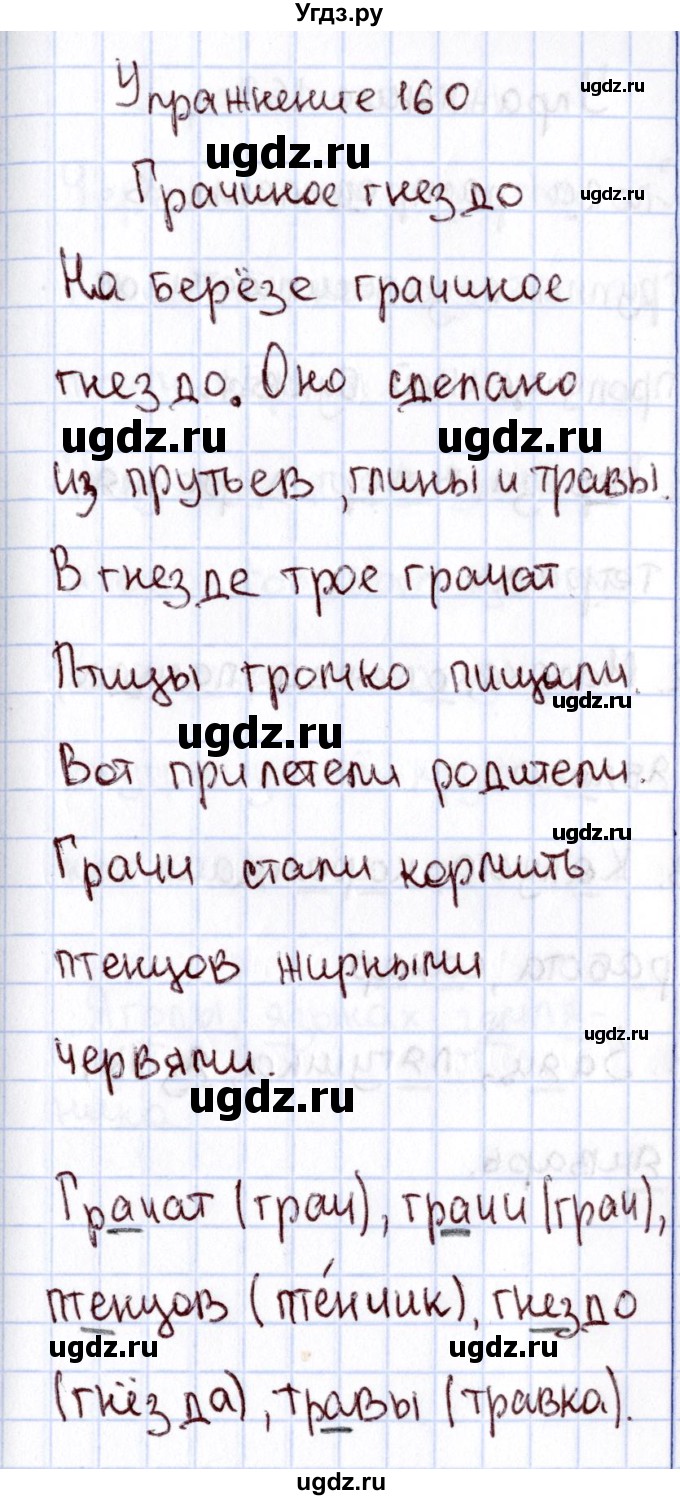 Угдз.ру
Упражнение 160
ugdz.ru
ugdz.ru
Грачиное гнездо
ugdz.ru
На берёзе грачиное
гнездо. Оно сделано
ugdz.ru ugdz.ru
из прутьев, глины и травы.
В гнезде трое грачат
Птицы громко пищали.
ugdz.ru
ugdz.ru
Вот прилетели родители.
ugdz.ru
Грачи стали кормить
птенцов жирными
ugdz.ru
червями.
ugdz.ru
Грачат (грач), грачи (грач),
птенцов (пте́нчик), гнездо
ugdz.ru ugdz.ru
(гнёзда), травы (травка).
ugdz.ru